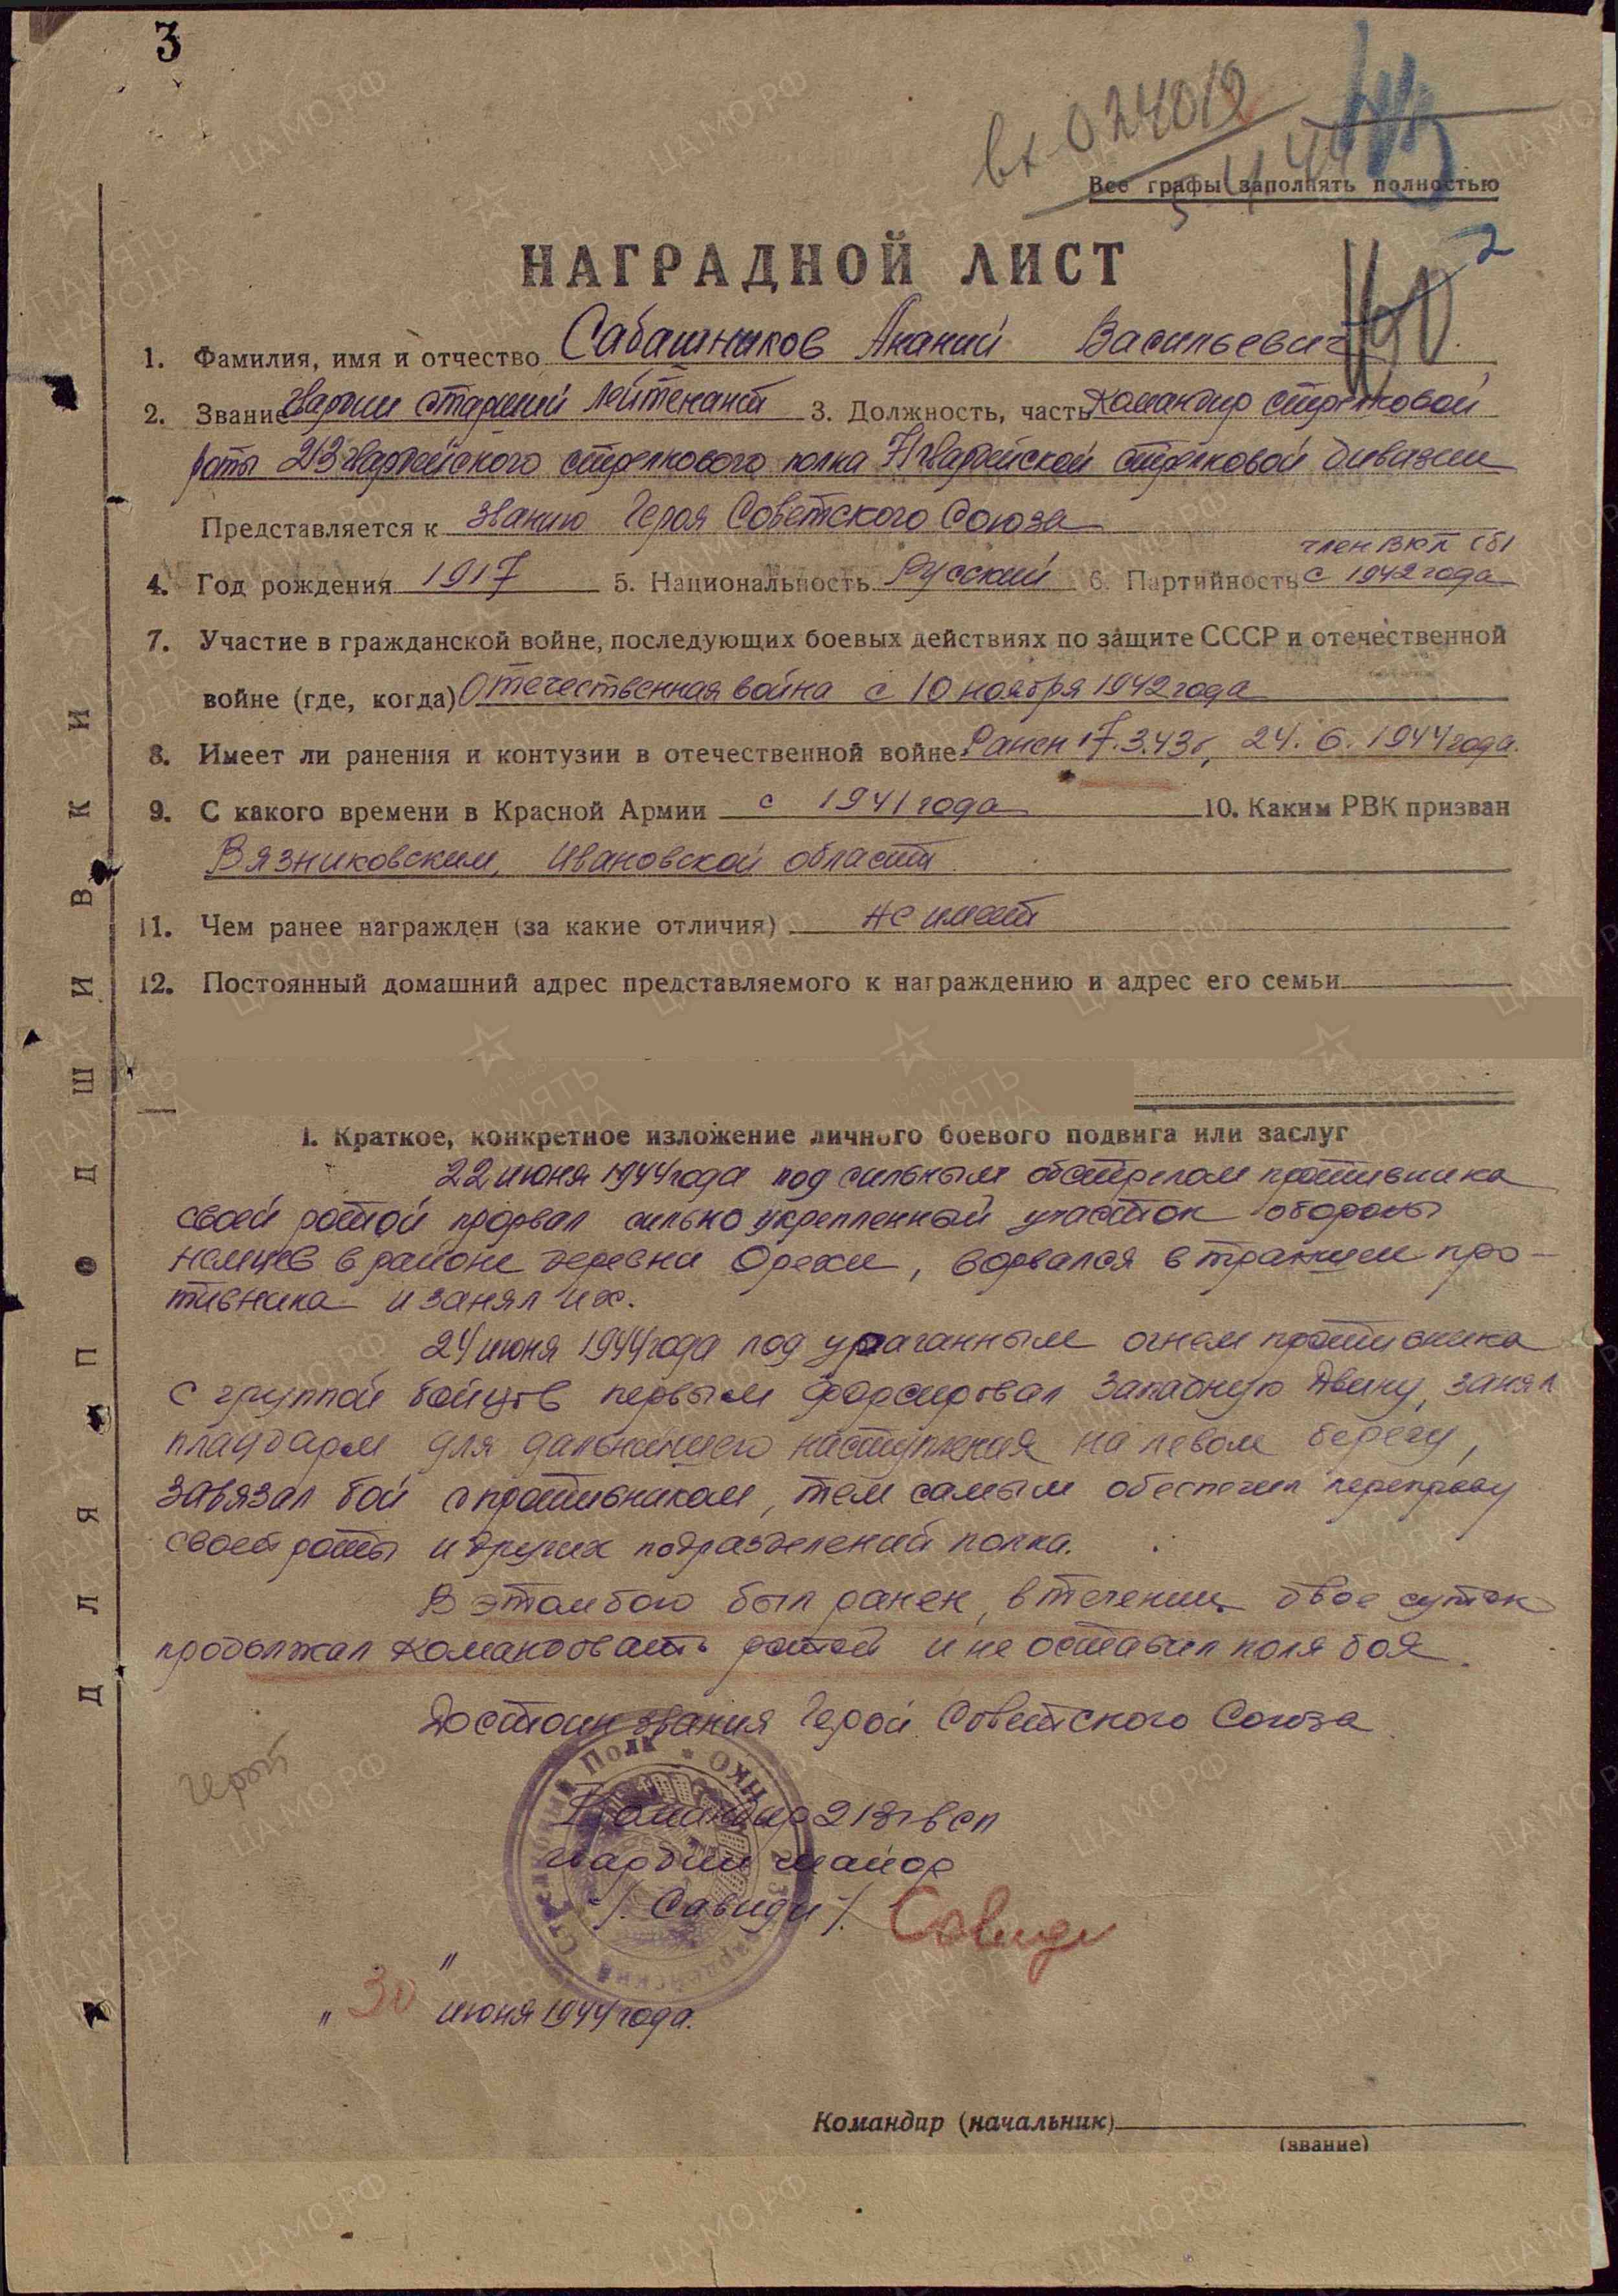 3
вх-024019
Все графы заполнять полностью
2
НАГРАДНОЙ ЛИСТ
1. Фамилия, имя и отчество Сабашников Ананий Васильевич
2. Звание гвардии старший лейтенант 3. Должность, часть командир стрелковой
роты 213 гвардейского стрелкового полка 71 гвардейской стрелковой дивизии
Представляется к званию Героя Советского Союза
член ВКП (б)
4. Год рождения 1917 5. Национальность Русский 6. Партийность с 1942 года
7. Участие в гражданской войне, последующих боевых действиях по защите СССР и отечественной
войне (где, когда) Отечественная война с 10 ноября 1942 года
8. Имеет ли ранения и контузии в отечественной войне Ранен 17.3.43г, 24.6.1944 года.
9. С какого времени в Красной Армии с 1941 года 10. Каким РВК призван
Вязниковским, Ивановской области
11. Чем ранее награжден (за какие отличия) не имеет
12. Постоянный домашний адрес представляемого к награждению и адрес его семьи
I. Краткое, конкретное изложение личного боевого подвига или заслуг
22 июня 1944 года под сильным обстрелом противника
своей ротой прорвал сильно укрепленный участок обороны
немцев в районе деревни Орехи, ворвался в траншеи про-
тивника и занял их.
24 июня 1944 года под ураганным огнем противника
с группой бойцов первым форсировал Западную Двину, занял
плацдарм для дальнейшего наступления на левом берегу,
завязал бой с противником, тем самым обеспечил переправу
своей роты и других подразделений полка.
В этом бою был ранен, в течении двое суток
продолжал командовать ротой и не оставил поля боя.
Достоин звания Герой Советского Союза
Герой
Командир 213 гв сп
гвардии майор
/. Савиди /. Савиди
"30" июня 1944 года.
Командир (начальник)
(звание)
ДЛЯ ПОДШИВКИ
Стрелковый Полк * НКО *
ЦАМО.РФ
ПАМЯТЬ НАРОДА